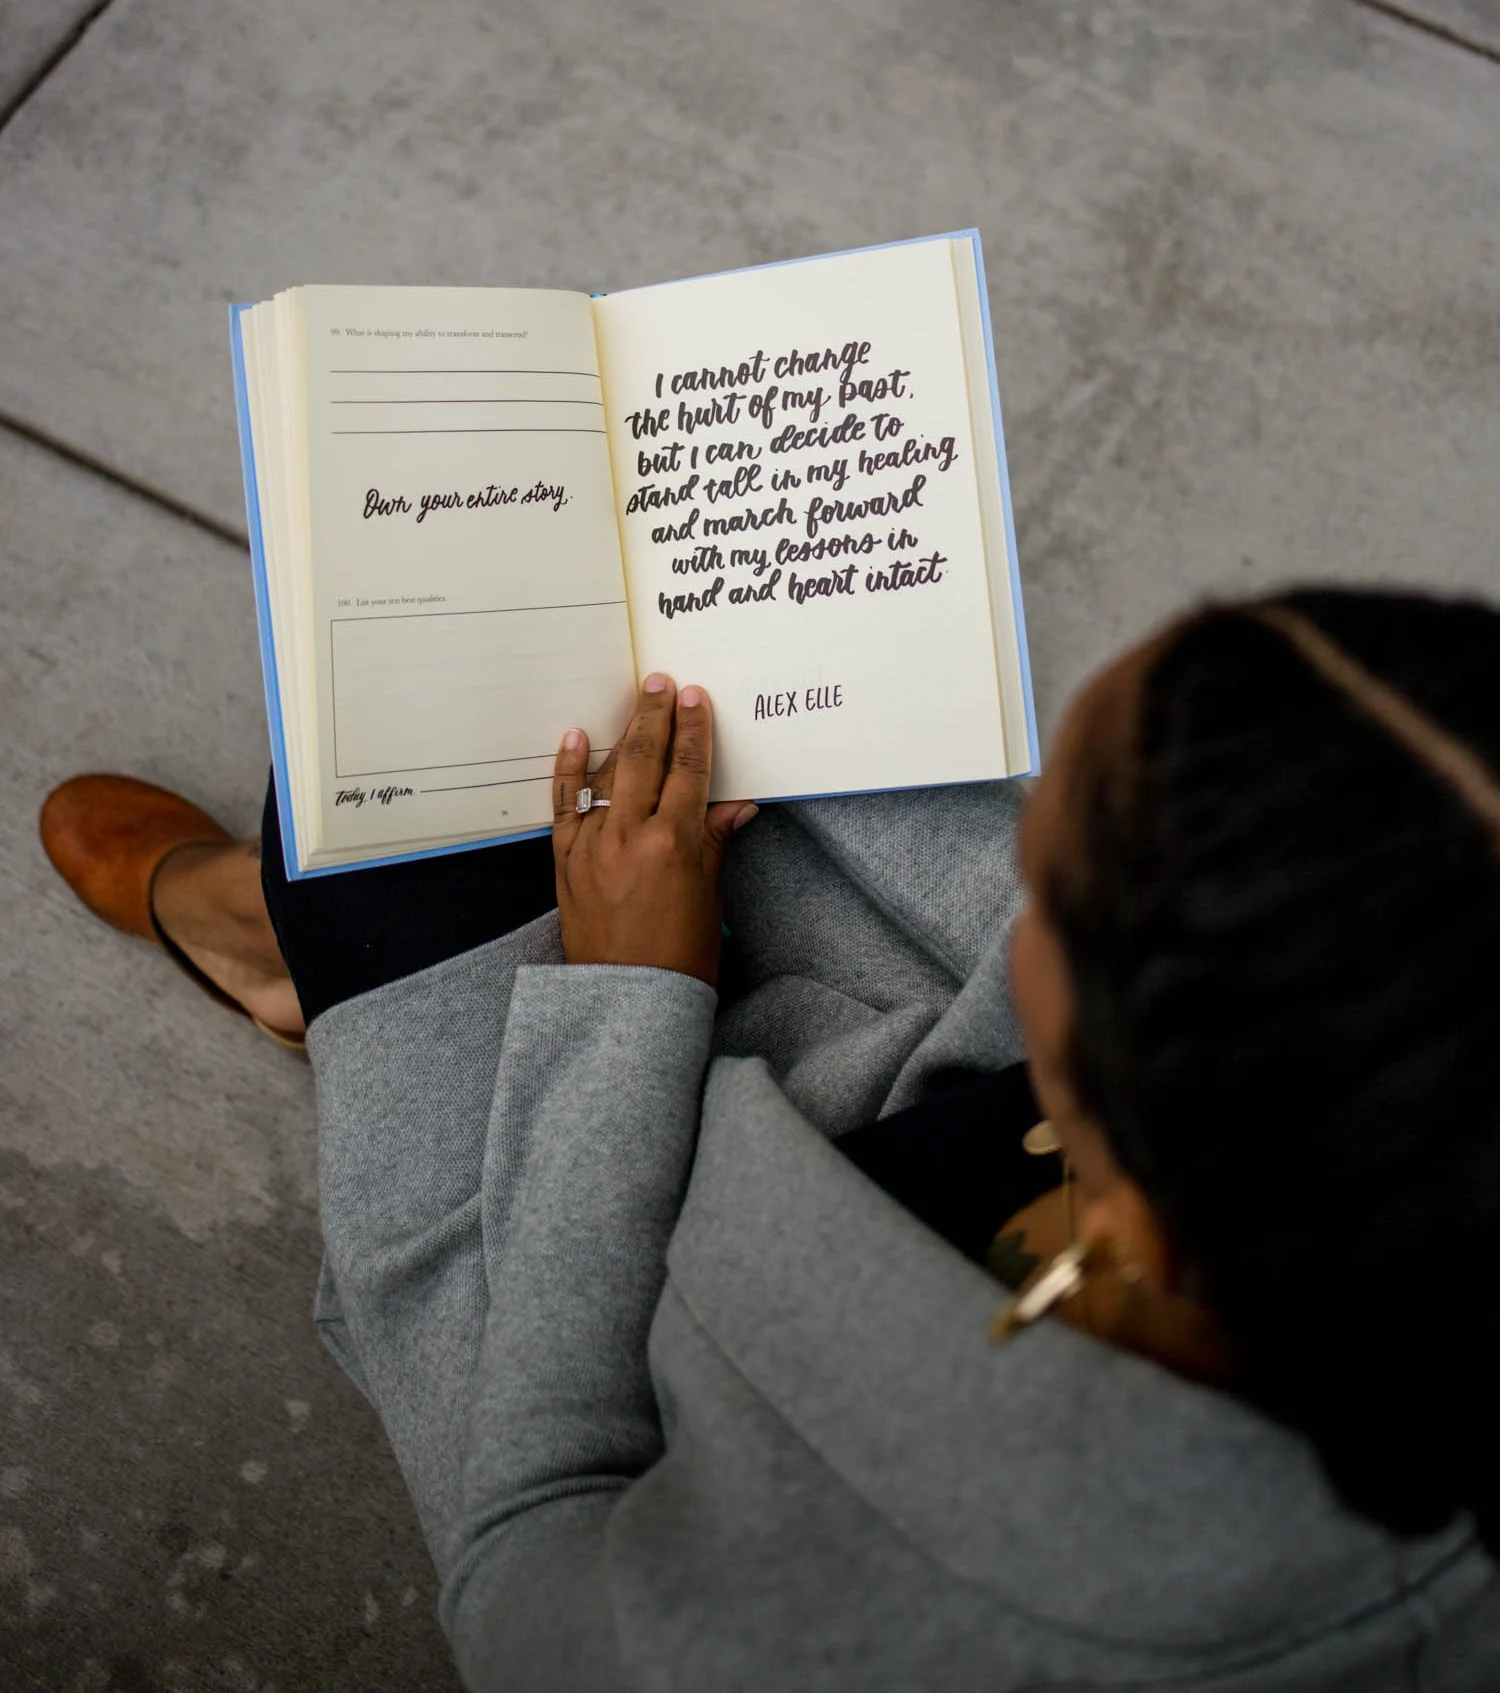 99. What is shaping my ability to transform and transcend?
Own your entire story.
100. List your ten best qualities.
today, I affirm
96
I cannot change
the hurt of my past,
but I can decide to
stand tall in my healing
and march forward
with my lessons in
hand and heart intact.
ALEX ELLE